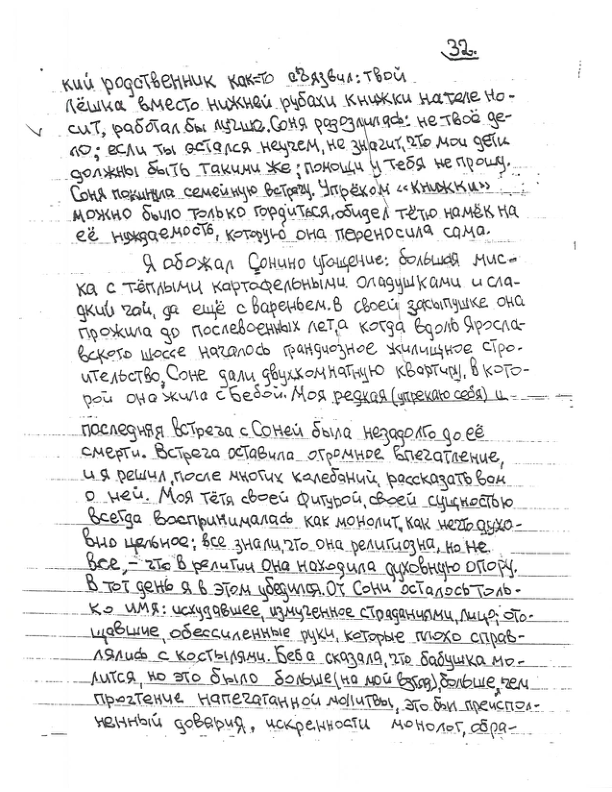 32.
кий родственник как-то съязвил: твой
Лёшка вместо нижней рубахи книжки на теле но-
сит, работал бы лучше. Соня разозлилась: не твоё де-
ло; если ты остался неучем, не значит, что мои дети
должны быть такими же; помощи у тебя не прошу.
Соня покинула семейную встречу. Упрёком «книжки»
можно было только гордиться, обидел тётю намёк на
её нуждаемость, которую она переносила сама.
Я обожал Сонино угощение: большая мис-
ка с тёплыми картофельными оладушками и сла-
дкий чай, да ещё с вареньем. В своей засыпушке она
прожила до послевоенных лет, а когда вдоль Яросла-
вского шоссе началось грандиозное жилищное стро-
ительство, Соне дали двухкомнатную квартиру, в кото-
рой она жила с Бебой. Моя редкая (упрекаю себя) и
последняя встреча с Соней была незадолго до её
смерти. Встреча оставила огромное впечатление,
и я решил, после многих колебаний, рассказать вам
о ней. Моя тётя своей фигурой, своей сущностью
всегда воспринималась как монолит, как нечто духо-
вно цельное; все знали, что она религиозна, но не
все, – что в религии она находила духовную опору.
В тот день я в этом убедился. От Сони осталось толь-
ко имя: исхудавшее, измученное страданиями, лицо; ото-
щавшие, обессиленные руки, которые плохо справ-
лялись с костылями. Беба сказала, что бабушка мо-
лится, но это было больше (на мой взгляд), больше, чем
прочтение напечатанной молитвы, это был преиспол-
ненный доверия, искренности монолог, обра-